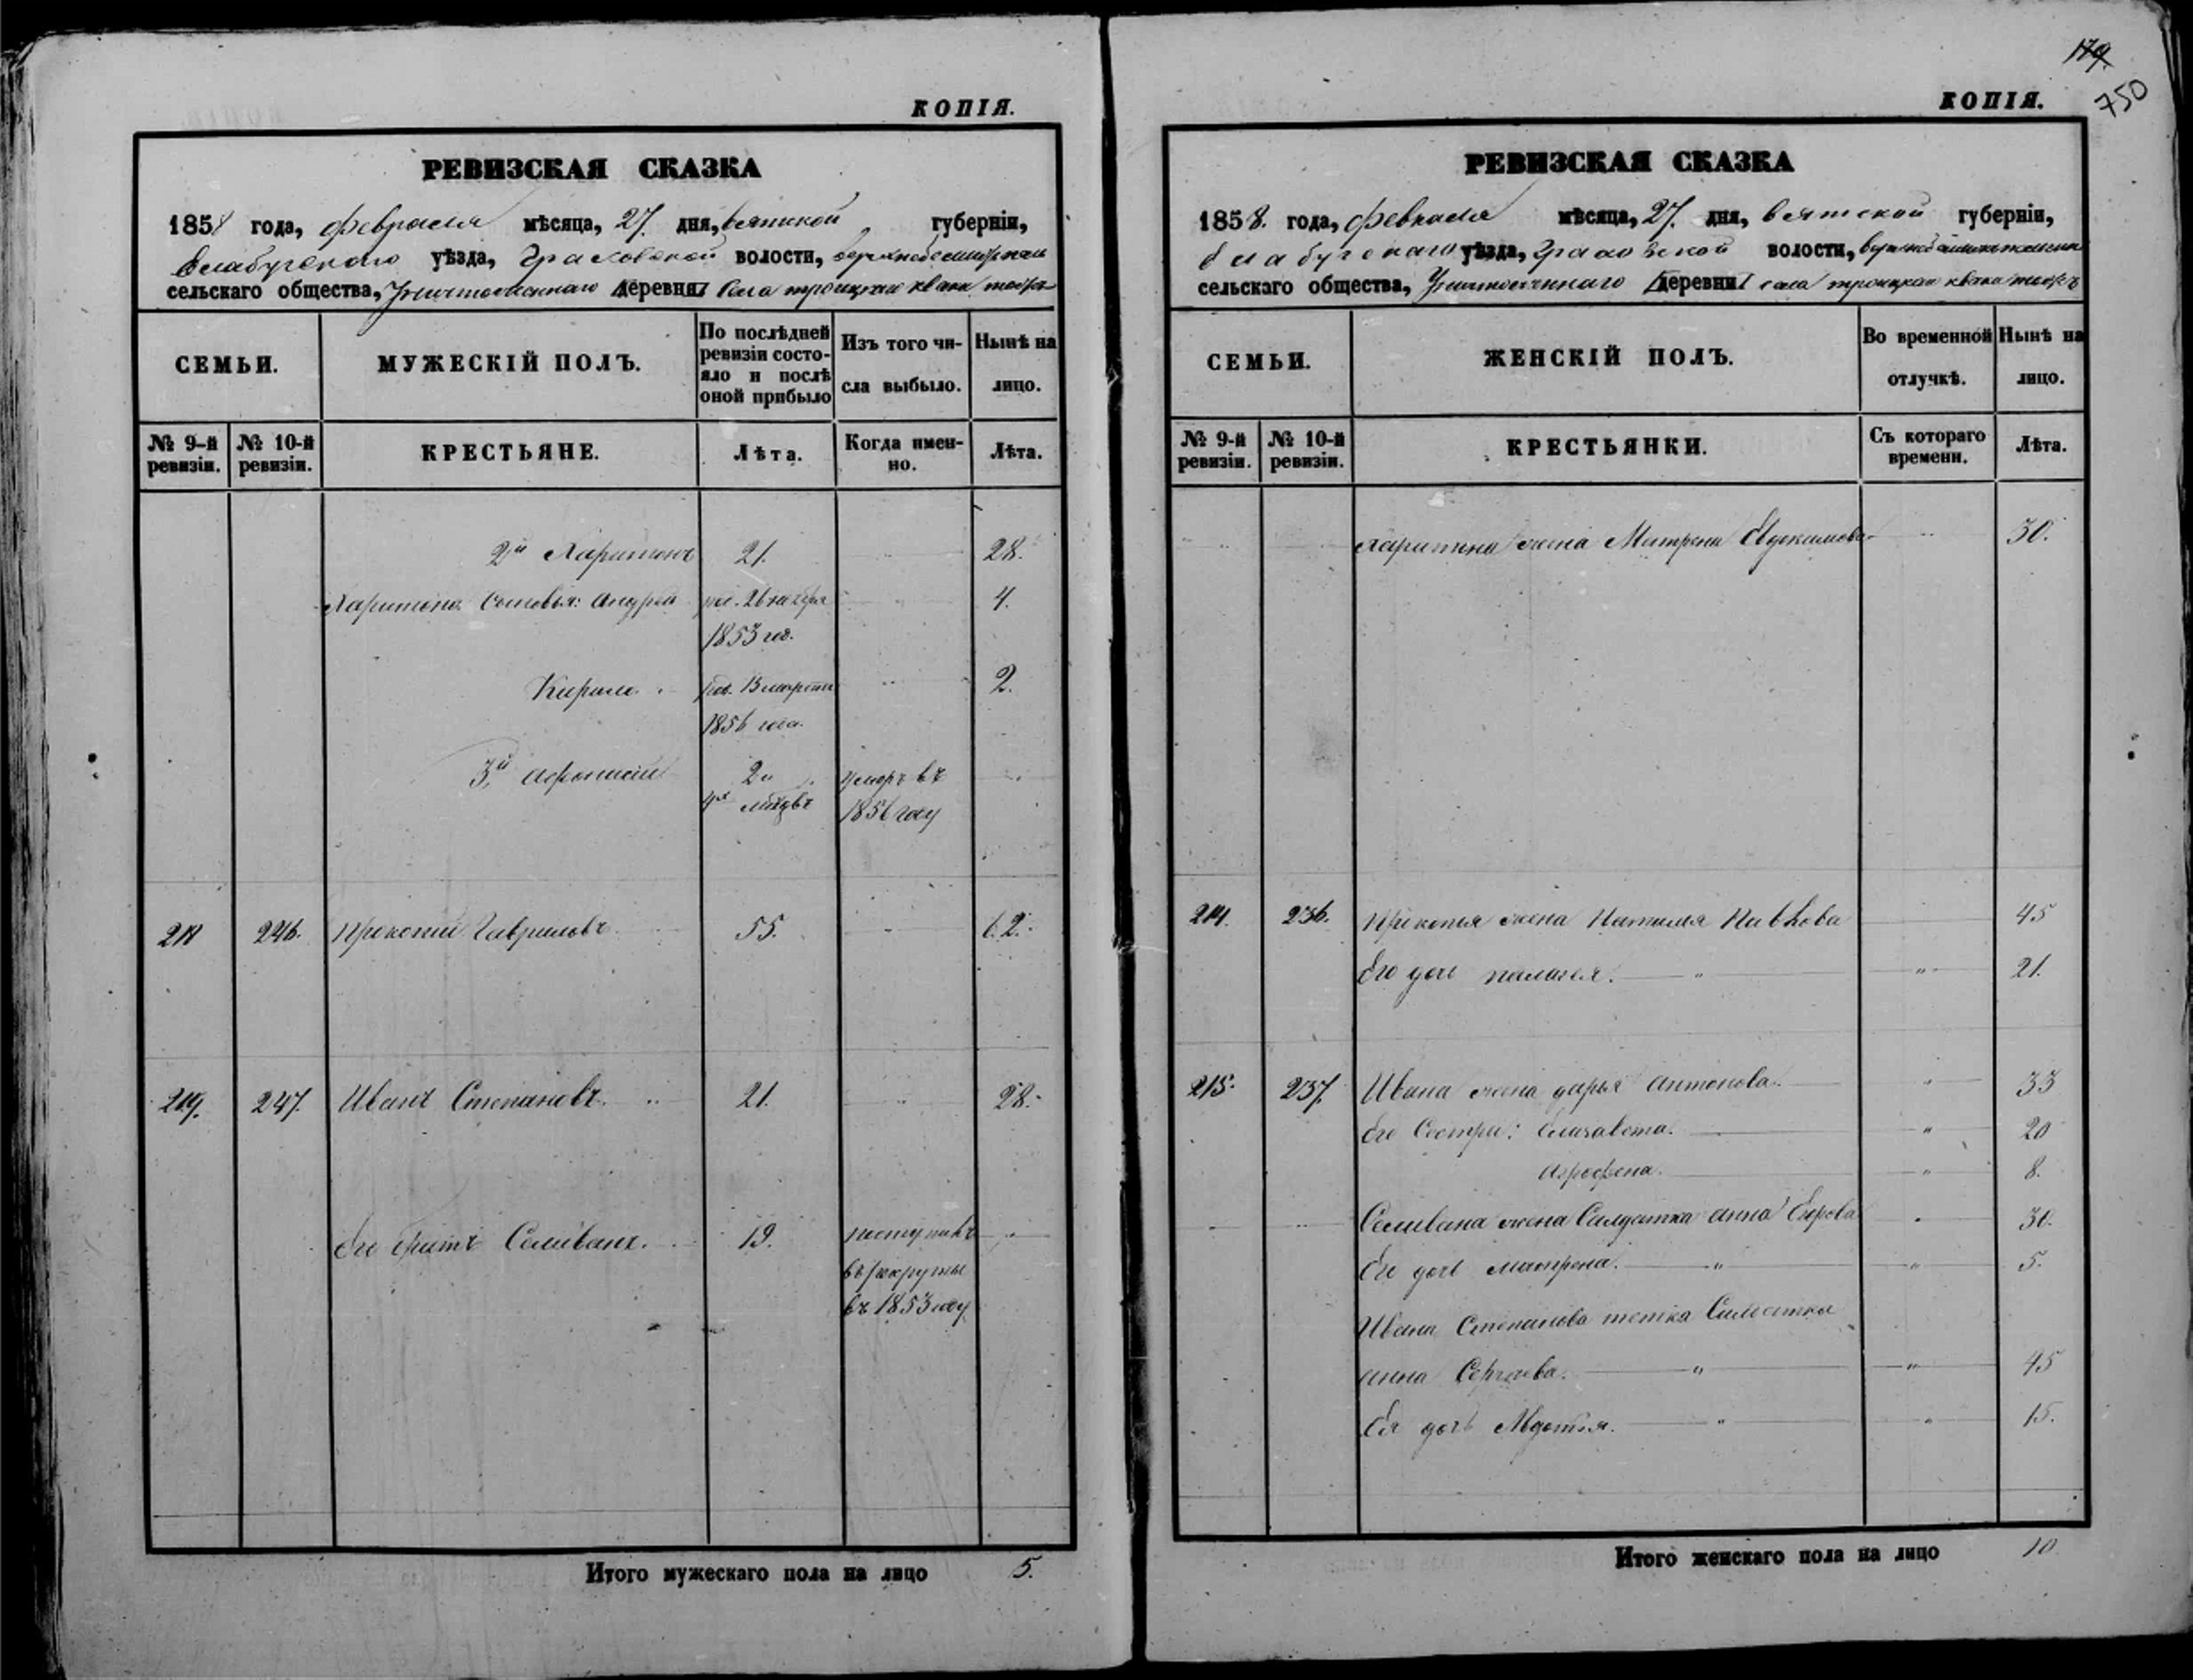 КОПІЯ.
РЕВИЗСКАЯ СКАЗКА
1858 года, февраля мѣсяца, 27. дня, вятской губерніи,
Елабугскаго уѣзда, Граховской волости,
сельскаго общества, деревни села троицкаго
СЕМЬИ.
МУЖЕСКІЙ ПОЛЪ.
По послѣдней ревизіи состояло и послѣ оной прибыло
Изъ того числа выбыло.
Нынѣ на лицо.
№ 9-й ревизіи.
№ 10-й ревизіи.
КРЕСТЬЯНЕ.
Лѣта.
Когда именно.
Лѣта.
2й Харитонъ 21. 28.
Харитона Сыновья: Андрей 4.
1853 год.
Кирило. 2.
1856 года.
3й Афонасій умеръ въ
1856 году
246. Прокопій Гавриловъ 55. 62.
219. 247. Иванъ Степановъ. 21. 28.
Его братъ Селиванъ. 19. поступилъ
въ рекруты
въ 1853 году
Итого мужескаго пола на лицо 5.
179.
750
КОПІЯ.
РЕВИЗСКАЯ СКАЗКА
1858. года, февраля мѣсяца, 27. дня, вятской губерніи,
елабугскаго уѣзда, граховской волости,
сельскаго общества, деревни села троицкаго
СЕМЬИ.
ЖЕНСКІЙ ПОЛЪ.
Во временной отлучкѣ.
Нынѣ на лицо.
№ 9-й ревизіи.
№ 10-й ревизіи.
КРЕСТЬЯНКИ.
Съ котораго времени.
Лѣта.
Харитона жена Матрена Евдокимова 30.
214. 236. Прокопья жена Наталья Павлова 45
Его дочь палагея. 21.
215. 237. Ивана жена дарья антонова. 33
Его Сестры: Елизавета. 20
Агрофена. 8.
Селивана жена Салдатка анна Егорова 30.
Его дочь матрена. 5.
Ивана Степанова тетка Салдатка
анна Сергеева. 45
Ея дочь Авдотья. 15.
Итого женскаго пола на лицо 10.